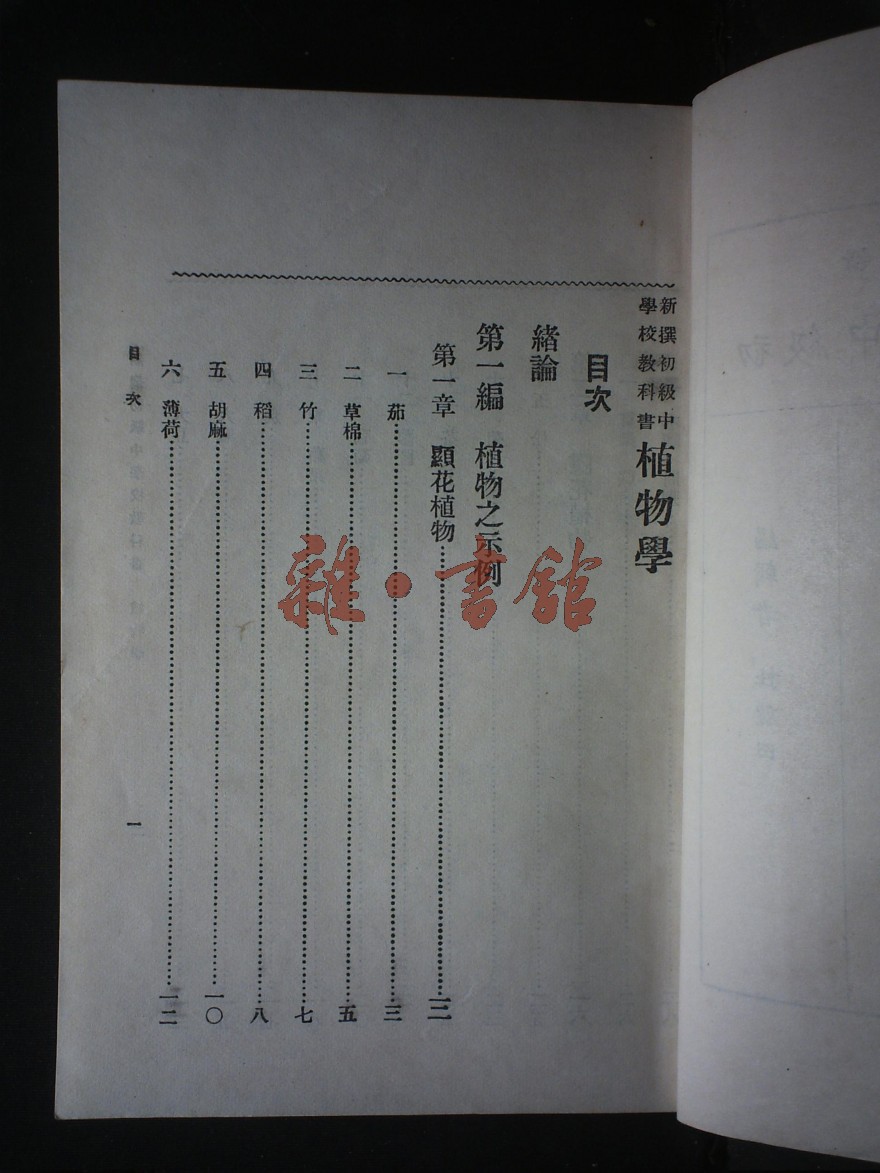 新撰初級中學校教科書 植物學
目次
緒論
第一編 植物之示例
第一章 顯花植物…三
一 茄…三
二 草棉…五
三 竹…七
四 稻…八
五 胡麻…一〇
六 薄荷…一二
目次
一
雜·書館